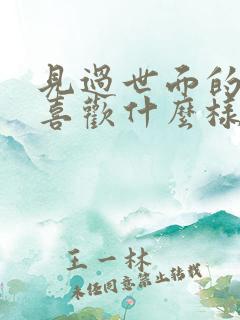 見過世面的
喜歡什麼樣
王一林
未經同意禁止轉載